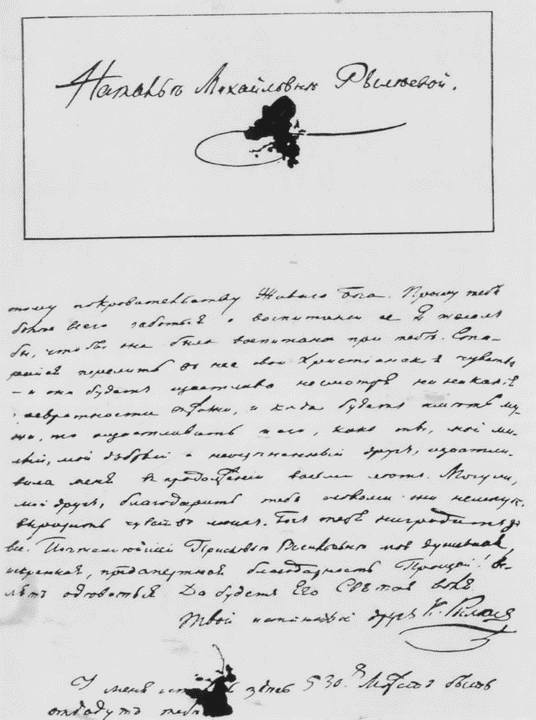 Натальѣ Михайловнѣ Рылѣевой.
тому покровительству Живаго Бога. Прошу тебя
болѣе всего заботься о воспитаніи ее. Я желалъ
бы, чтобы она была воспитана при тебѣ. Ста-
райся перелить въ нее свои Христіанскія чувства
— и она будетъ щастлива несмотря ни на какія
превратности жизни, и когда будетъ имѣть му-
жа, то ощастливитъ и его, какъ ты, мой ми-
лый, мой добрый и неоцѣненный другъ, щастли-
вила меня въ продолженіи восьми лѣтъ. Могу ли,
мой другъ, благодарить тебя словами: они не могутъ
выразить чувствъ моихъ. Богъ тебя наградитъ за
все. Почтеннѣйшей Прасковьѣ Васильевнѣ моя душевная,
искренная, предсмертная благодарность. Прощай! Ве-
лятъ одѣваться. Да будетъ Его Святая воля
Твой истинный другъ К. Рылѣевъ
У меня здѣсь 530 р. Можетъ быть
отдадутъ тебѣ